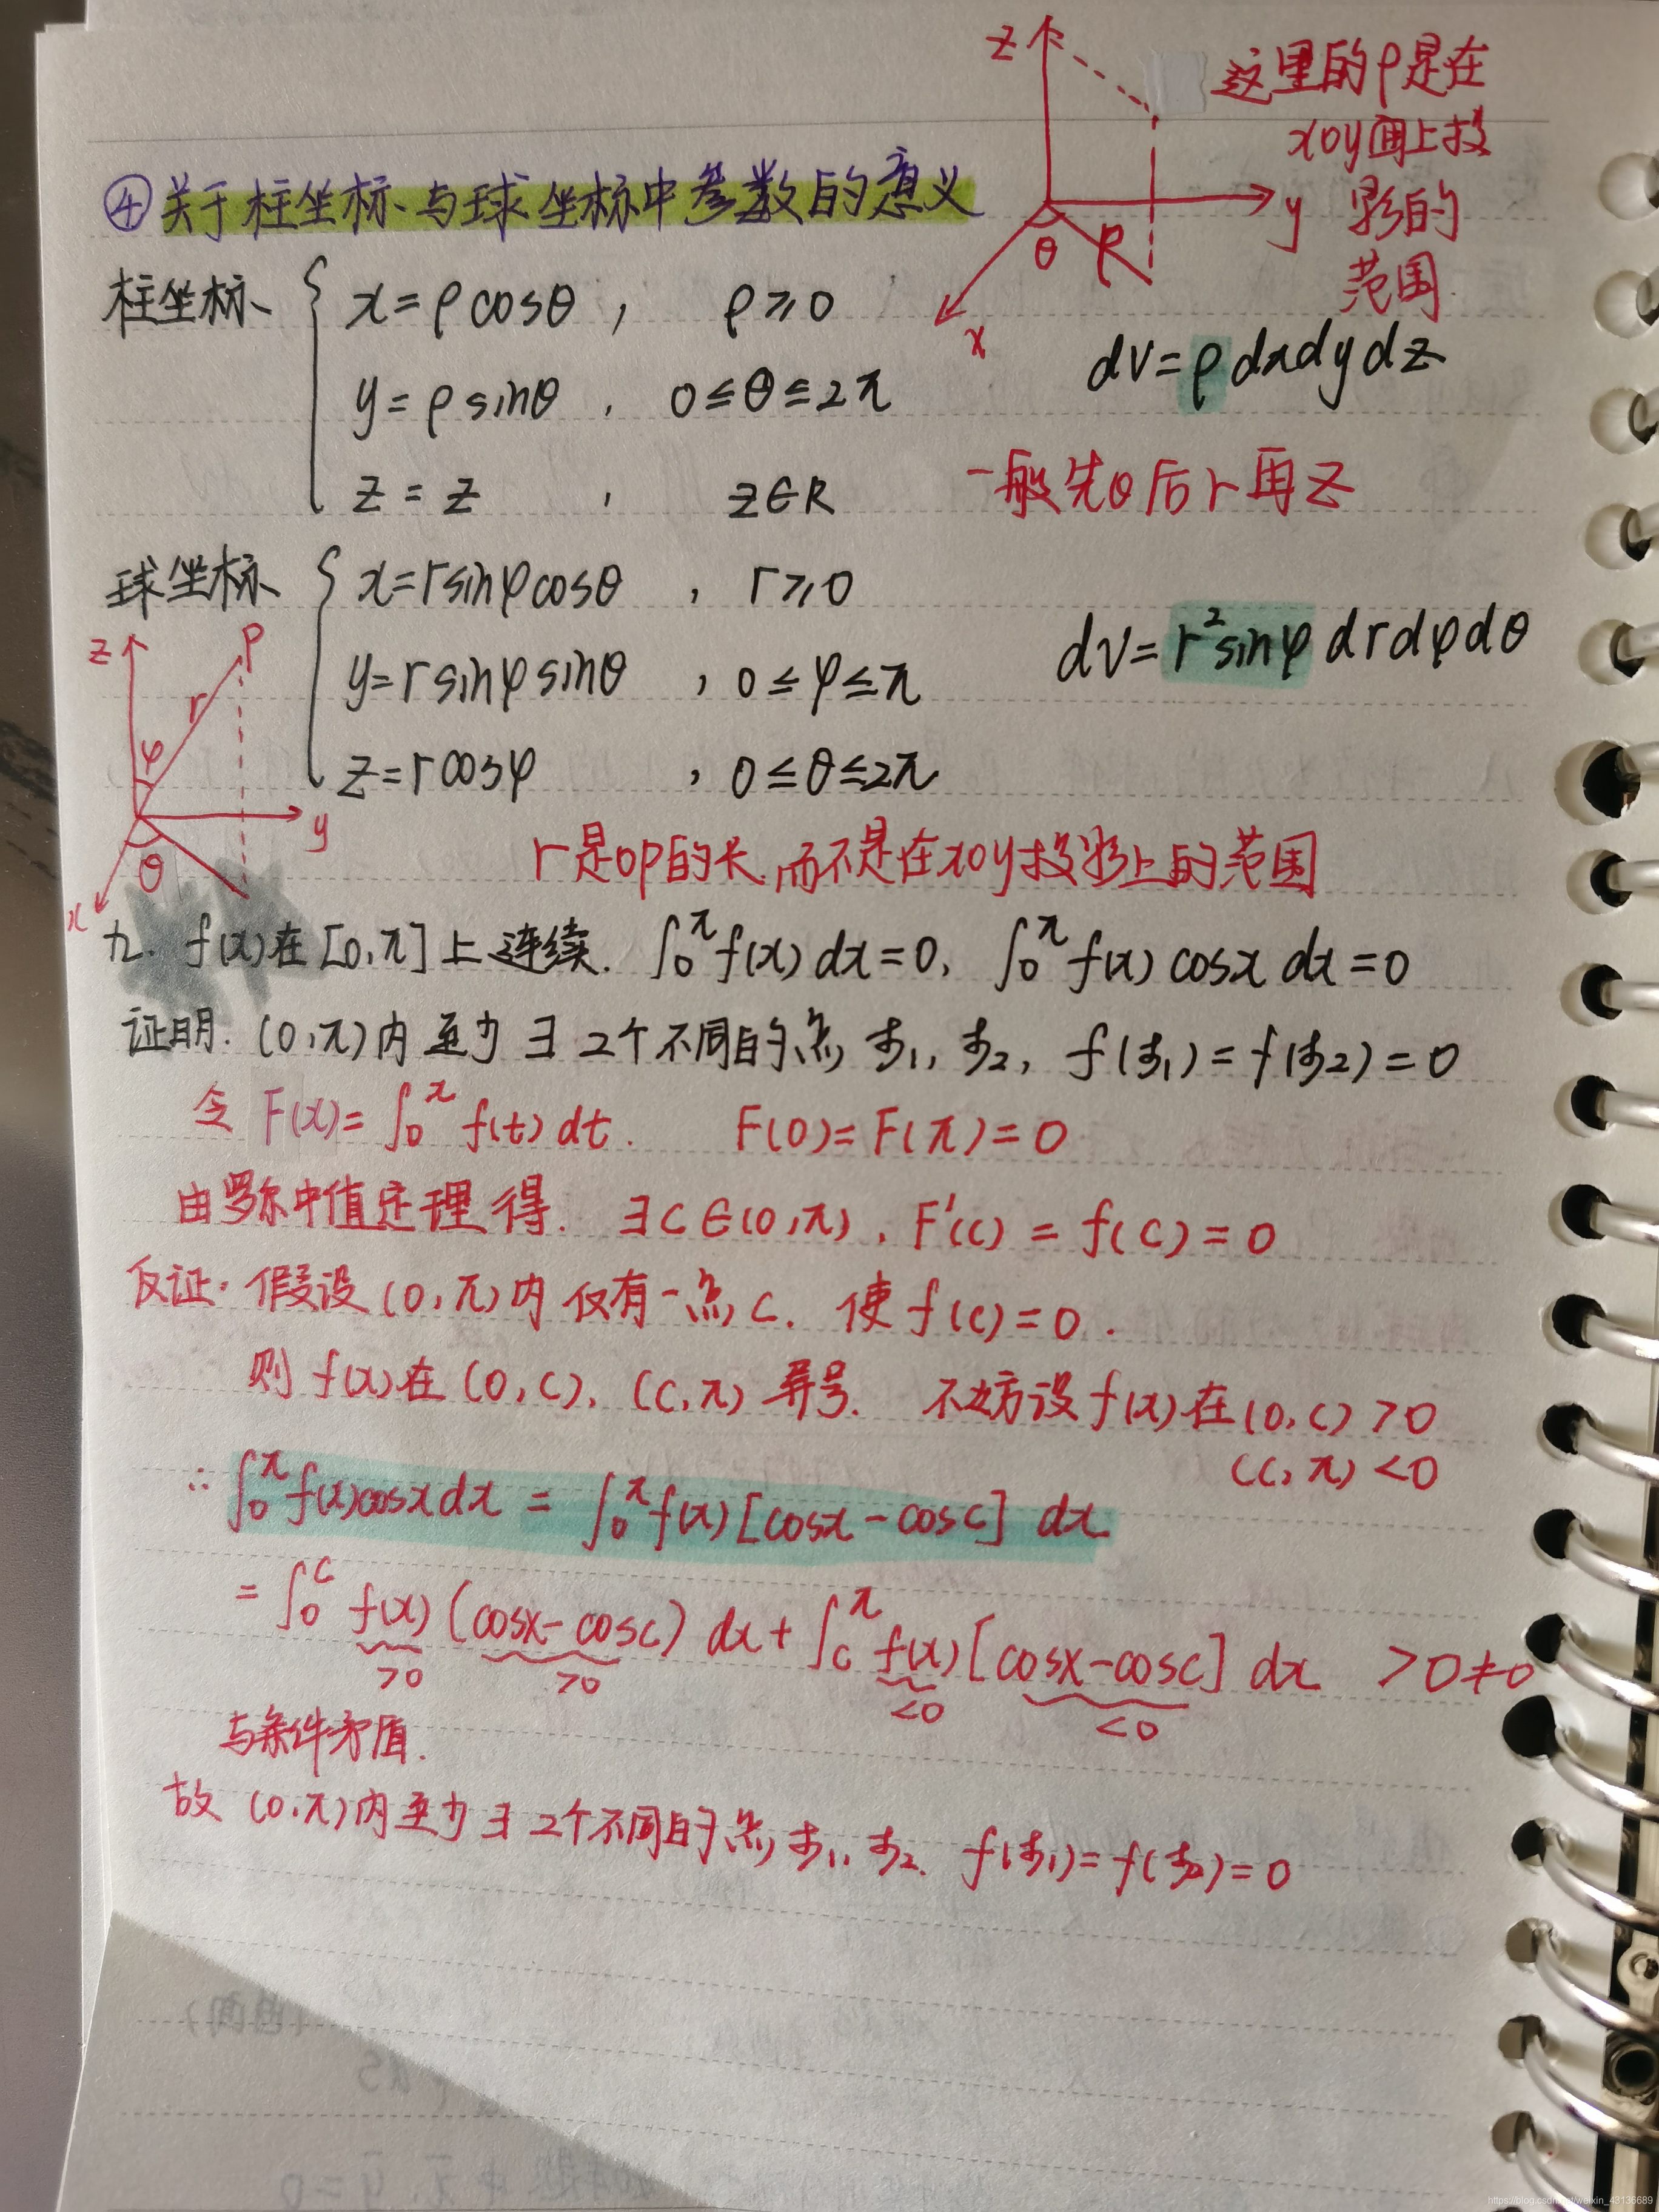 ④关于柱坐标与球坐标中参数的意义
z
这里的ρ是在
xoy面上投
影的
范围
y
θ
ρ
x
柱坐标
x=ρcosθ , ρ≥0
y=ρsinθ , 0≤θ≤2π
z=z , z∈R
dv=ρdxdydz
一般先θ后r再z
球坐标
x=rsinφcosθ , r≥0
y=rsinφsinθ , 0≤φ≤π
z=rcosφ , 0≤θ≤2π
dv=r²sinφdrdφdθ
z
P
r
φ
y
θ
x
r是op的长,而不是在xoy投影上的范围
九. f(x)在[0,π]上连续. ∫₀^π f(x)dx=0, ∫₀^π f(x)cosx dx=0
证明. (0,π)内至少∃2个不同的点ξ₁,ξ₂, f(ξ₁)=f(ξ₂)=0
令F(x)=∫₀^x f(t)dt. F(0)=F(π)=0
由罗尔中值定理得. ∃c∈(0,π), F'(c)=f(c)=0
反证:假设(0,π)内仅有一点c. 使f(c)=0.
则f(x)在(0,c),(c,π)异号. 不妨设f(x)在(0,c)>0
(c,π)<0
∴∫₀^π f(x)cosxdx=∫₀^π f(x)[cosx-cosc]dx
=∫₀^c f(x)(cosx-cosc)dx+∫_c^π f(x)[cosx-cosc]dx >0≠0
>0 >0 <0 <0
与条件矛盾.
故(0,π)内至少∃2个不同的点ξ₁,ξ₂. f(ξ₁)=f(ξ₂)=0
https://blog.csdn.net/weixin_43136689